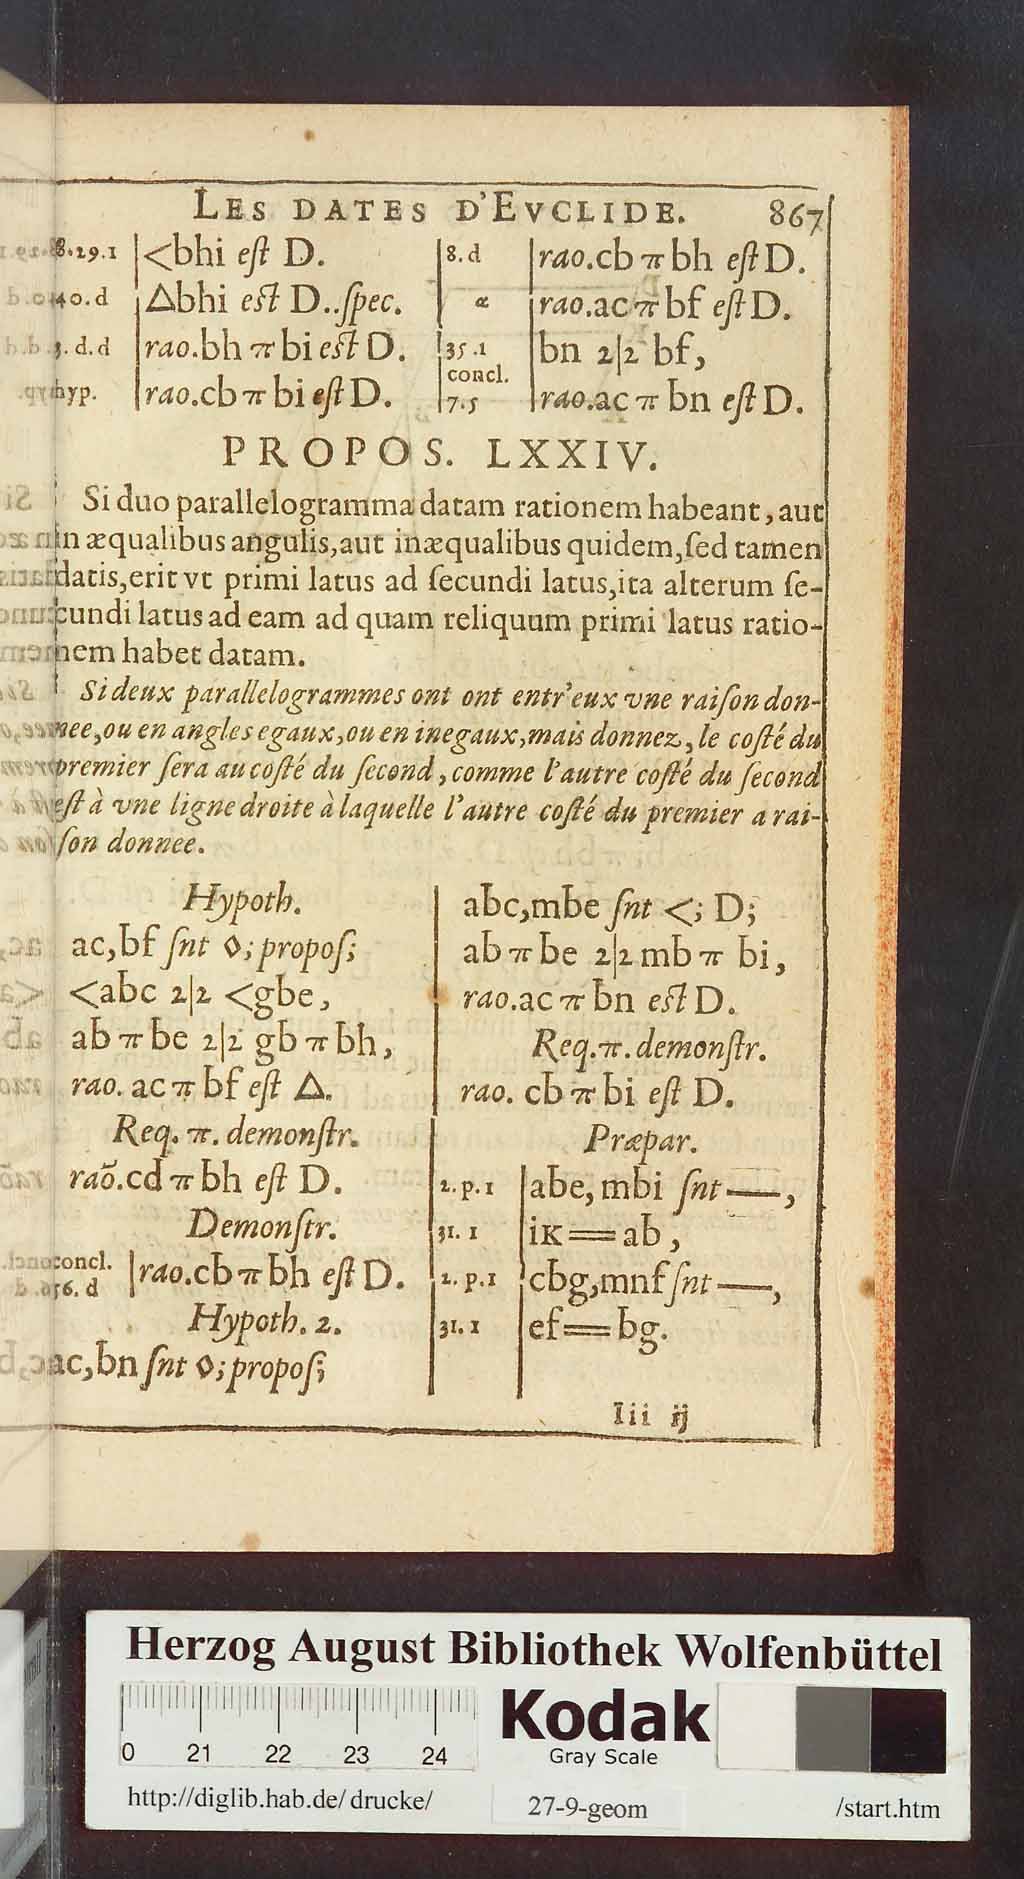 LES DATES D'EVCLIDE. 867
8.29.1 <bhi eſt D.
40.d △bhi eſt D..ſpec.
3.d.d rao.bh π bi eſt D.
hyp. rao.cb π bi eſt D.
8.d rao.cb π bh eſt D.
rao.ac π bf eſt D.
35.1 bn 2|2 bf,
concl.
7.5 rao.ac π bn eſt D.
PROPOS. LXXIV.
Si duo parallelogramma datam rationem habeant, aut
in æqualibus angulis, aut inæqualibus quidem, ſed tamen
datis, erit vt primi latus ad ſecundi latus, ita alterum ſe-
cundi latus ad eam ad quam reliquum primi latus ratio-
nem habet datam.
Si deux parallelogrammes ont ont entr'eux vne raiſon don-
nee, ou en angles egaux, ou en inegaux, mais donnez, le coſté du
premier ſera au coſté du ſecond, comme l'autre coſté du ſecond
eſt à vne ligne droite à laquelle l'autre coſté du premier a rai-
ſon donnee.
Hypoth.
ac, bf ſnt ◊; propoſ;
<abc 2|2 <gbe,
ab π be 2|2 gb π bh,
rao. ac π bf eſt △.
Req. π. demonſtr.
raõ.cd π bh eſt D.
Demonſtr.
concl.
56. d rao.cb π bh eſt D.
Hypoth. 2.
ac, bn ſnt ◊; propoſ;
abc, mbe ſnt <; D;
ab π be 2|2 mb π bi,
rao.ac π bn eſt D.
Req. π. demonſtr.
rao. cb π bi eſt D.
Præpar.
2.p.1 abe, mbi ſnt —,
31.1 iK = ab,
2.p.1 cbg, mnf ſnt —,
31.1 ef = bg.
Iii ij
Herzog August Bibliothek Wolfenbüttel
0 21 22 23 24
Kodak
Gray Scale
http://diglib.hab.de/drucke/ 27-9-geom /start.htm